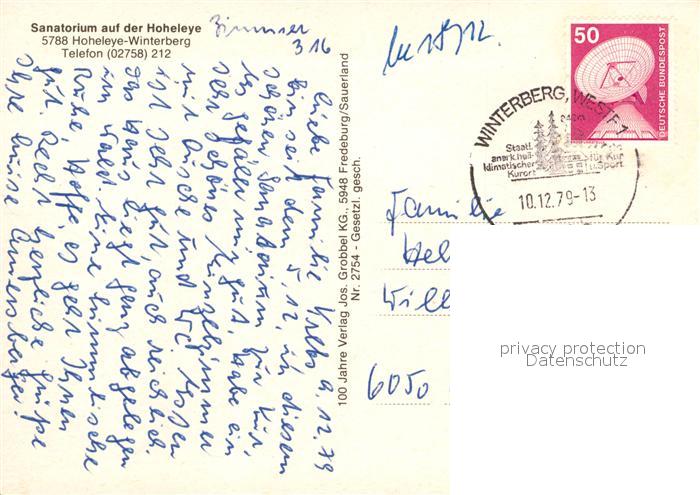 Sanatorium auf der Hoheleye
5788 Hoheleye-Winterberg
Telefon (02758) 212
Zimmer
316
Liebe Familie Krebs 9.12.79
Bin seit dem 5.12. in diesem
schönen Sanatorium zur Kur,
gefällt mir gut, habe ein
sehr schönes Einzelzimmer
mit Dusche und WC. Essen
ist sehr gut, auch reichlich.
Das Haus liegt ganz abgelegen
im Wald eine himmlische
Ruhe. Hoffe, es geht Ihnen
gut. Recht herzliche Grüße
Ihre Luise
100 Jahre Verlag Jos. Grobbel KG., 5948 Fredeburg/Sauerland
Nr. 2754 - Gesetzl. gesch.
50
DEUTSCHE BUNDESPOST
WINTERBERG, WESTF 1
Staatl.
anerk. heil-
klimatischer
Kurort
für Kur
u. Sport
10.12.79-13
Familie
Hel
Will
6050
privacy protection
Datenschutz